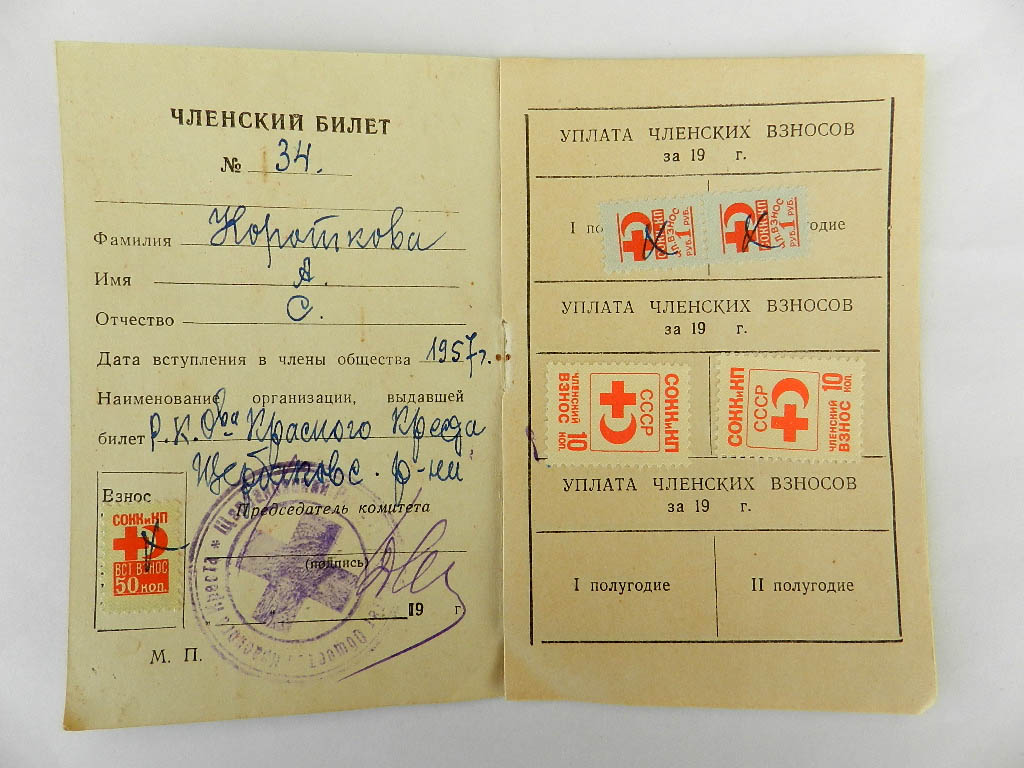 ЧЛЕНСКИЙ БИЛЕТ
№ 34.
Фамилия Короткова
Имя А.
Отчество С.
Дата вступления в члены общества 1957 г.
Наименование организации, выдавшей
билет Р. К. О-ва Красного Креста
Щербаковс. р-на
Взнос
СОКК и КП
ВСТ ВЗНОС
50 КОП.
Председатель комитета
(подпись)
19 г
М. П.
УПЛАТА ЧЛЕНСКИХ ВЗНОСОВ
за 19 г.
I по
одие
СОКК и КП
ЧЛ. ВЗНОС
РУБ. 1 РУБ.
СОКК и КП
ЧЛ. ВЗНОС
РУБ. 1 РУБ.
УПЛАТА ЧЛЕНСКИХ ВЗНОСОВ
за 19 г.
СОКК и КП
СССР
ЧЛЕНСКИЙ
ВЗНОС 10 КОП.
СОКК и КП
СССР
ЧЛЕНСКИЙ
ВЗНОС 10 КОП.
УПЛАТА ЧЛЕНСКИХ ВЗНОСОВ
за 19 г.
I полугодие
II полугодие